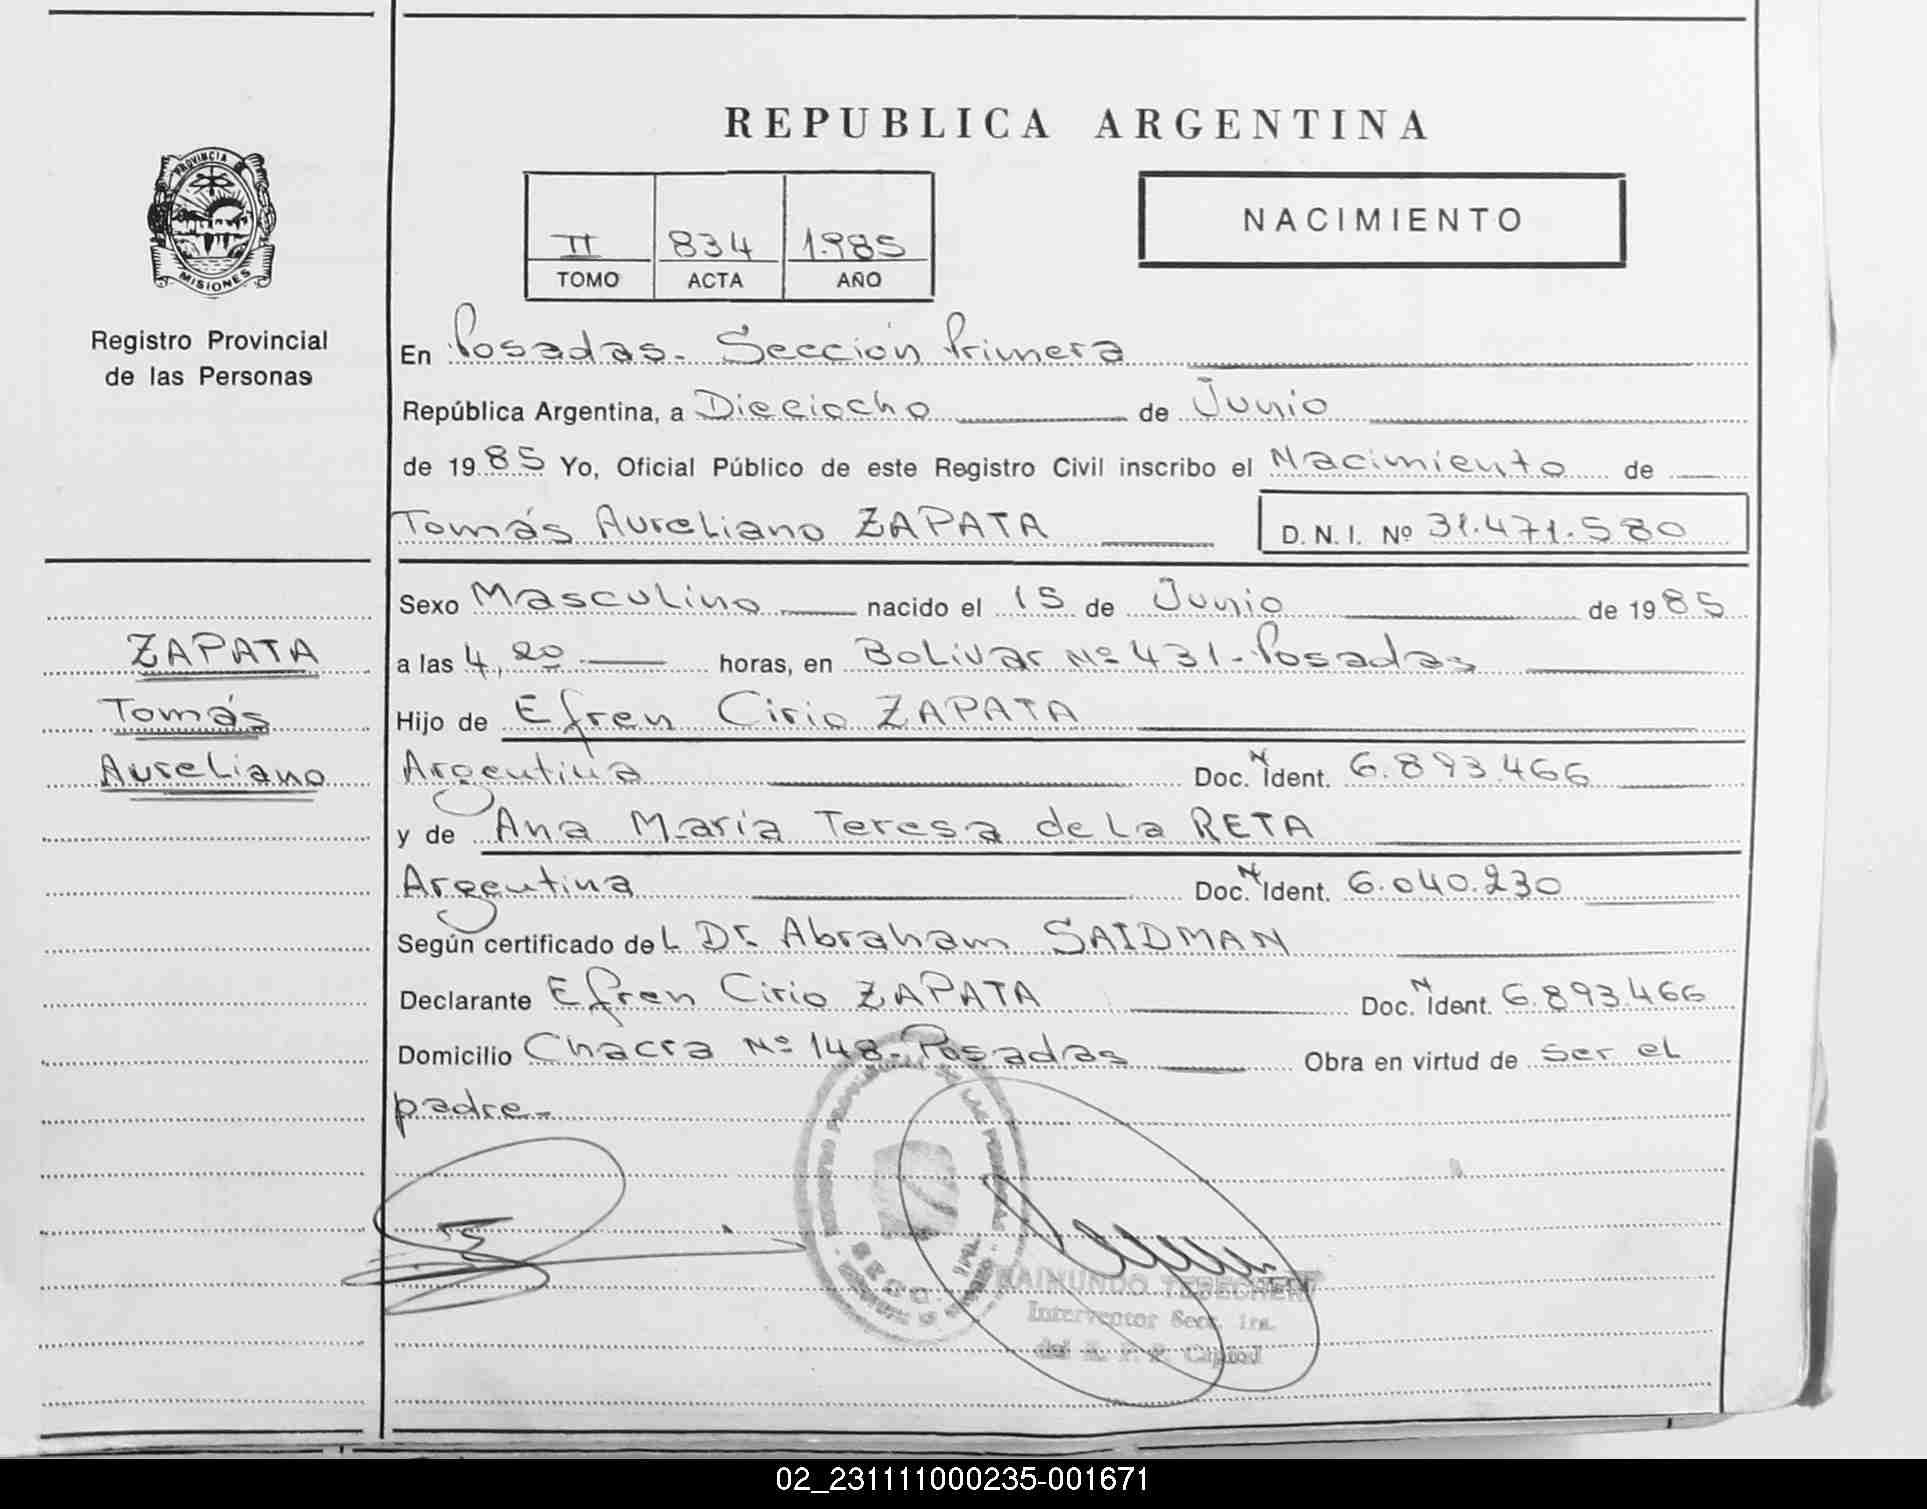 REPUBLICA ARGENTINA
PROVINCIA DE
MISIONES
Registro Provincial
de las Personas
II 834 1.985
TOMO ACTA AÑO
NACIMIENTO
En Posadas.- Sección Primera
República Argentina, a Dieciocho de Junio
de 1985 Yo, Oficial Público de este Registro Civil inscribo el Nacimiento de
Tomás Aureliano ZAPATA D.N.I. Nº 31.471.580
Sexo Masculino nacido el 15 de Junio de 1985
a las 4,20 horas, en Bolivar Nº 431-Posadas
Hijo de Efren Cirio ZAPATA
Argentina Doc. N Ident. 6.893.466
y de Ana Maria Teresa de La RETA
Argentina Doc. N Ident. 6.040.230
Según certificado deL Dr. Abraham SAIDMAN
Declarante Efren Cirio ZAPATA Doc. N Ident. 6.893.466
Domicilio Chacra Nº 148-Posadas Obra en virtud de ser el
padre.-
ZAPATA
Tomás
Aureliano
RAIMUNDO
Interventor Secc. 1ra.
del R. P. P. Capital
02_231111000235-001671